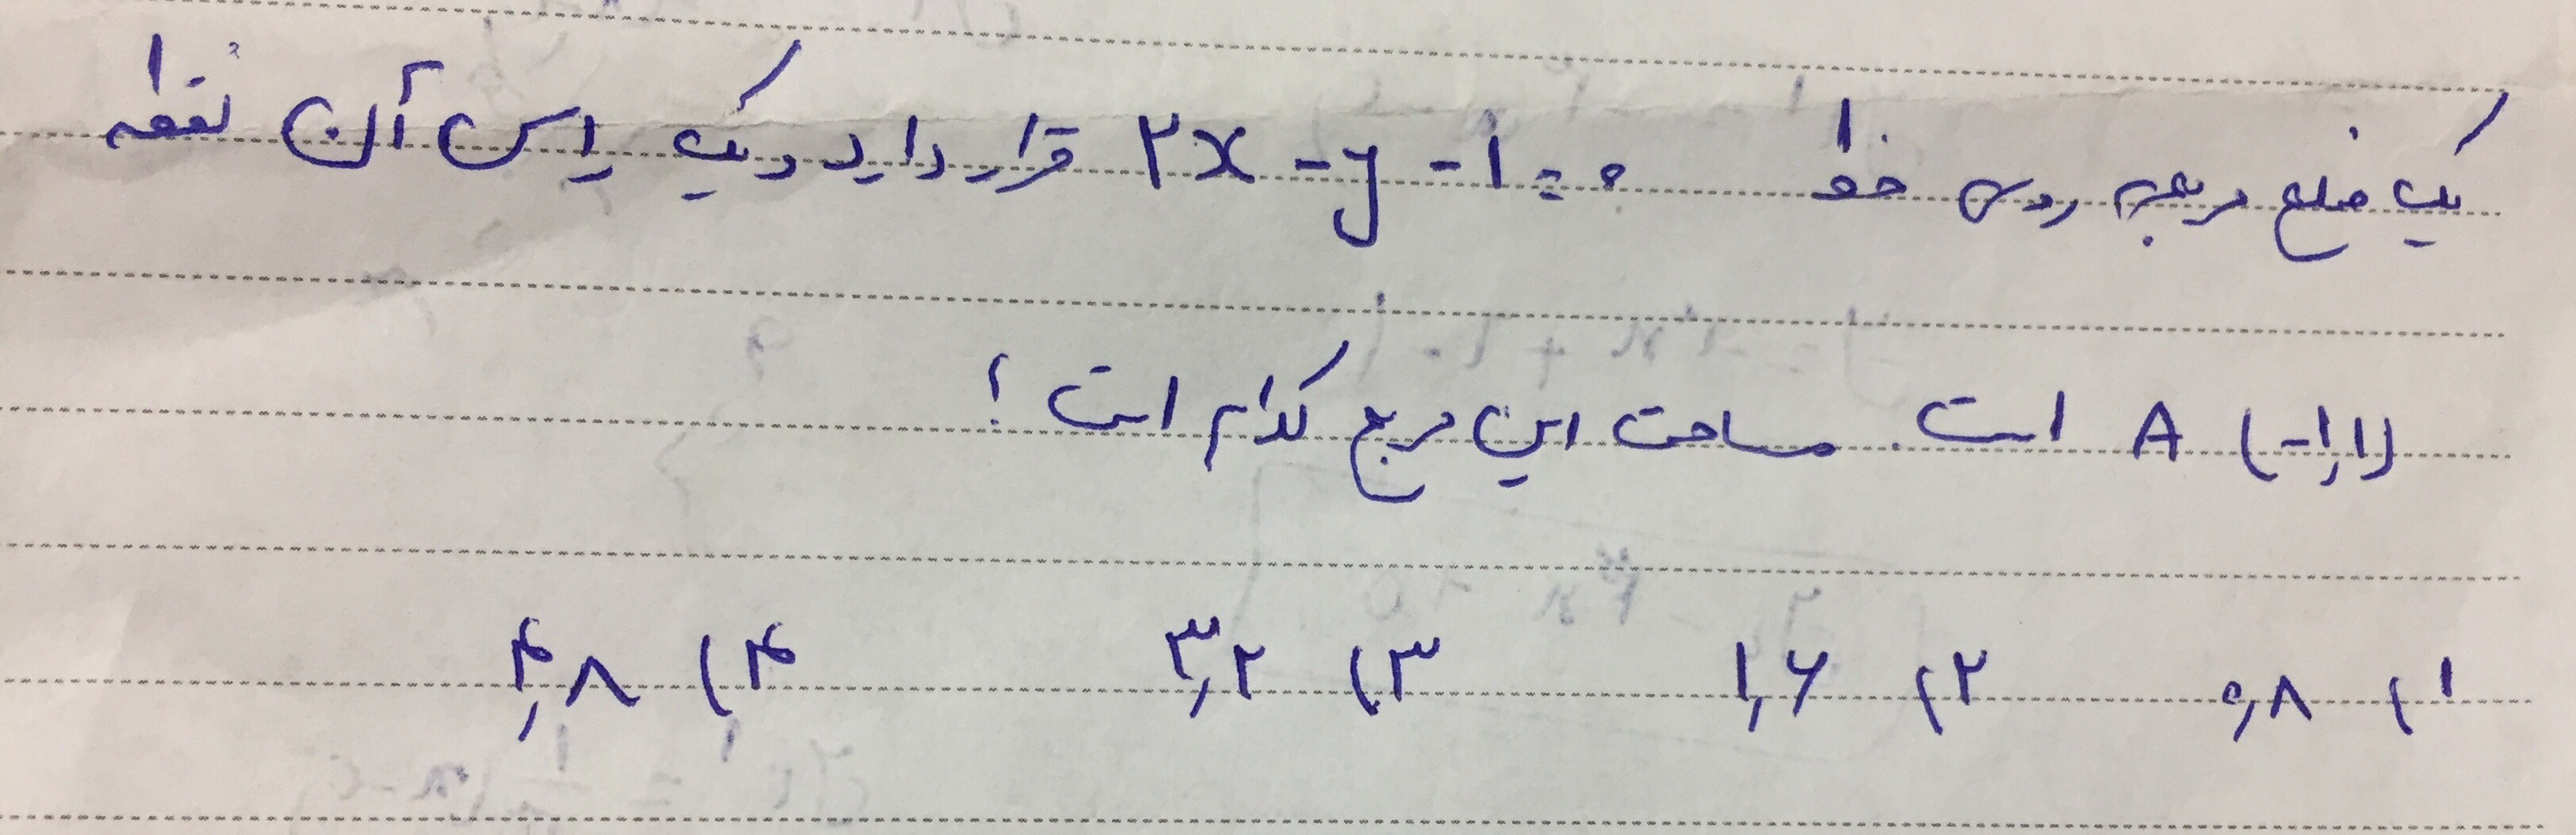 یک ضلع مربعی روی خط ۲x - y - ۱ = ۰ قرار دارد و یک راس آن نقطه
A (-۱,۱) است. مساحت این مربع کدام است؟
۱) ۰,۸ ۲) ۱,۶ ۳) ۳,۲ ۴) ۴,۸